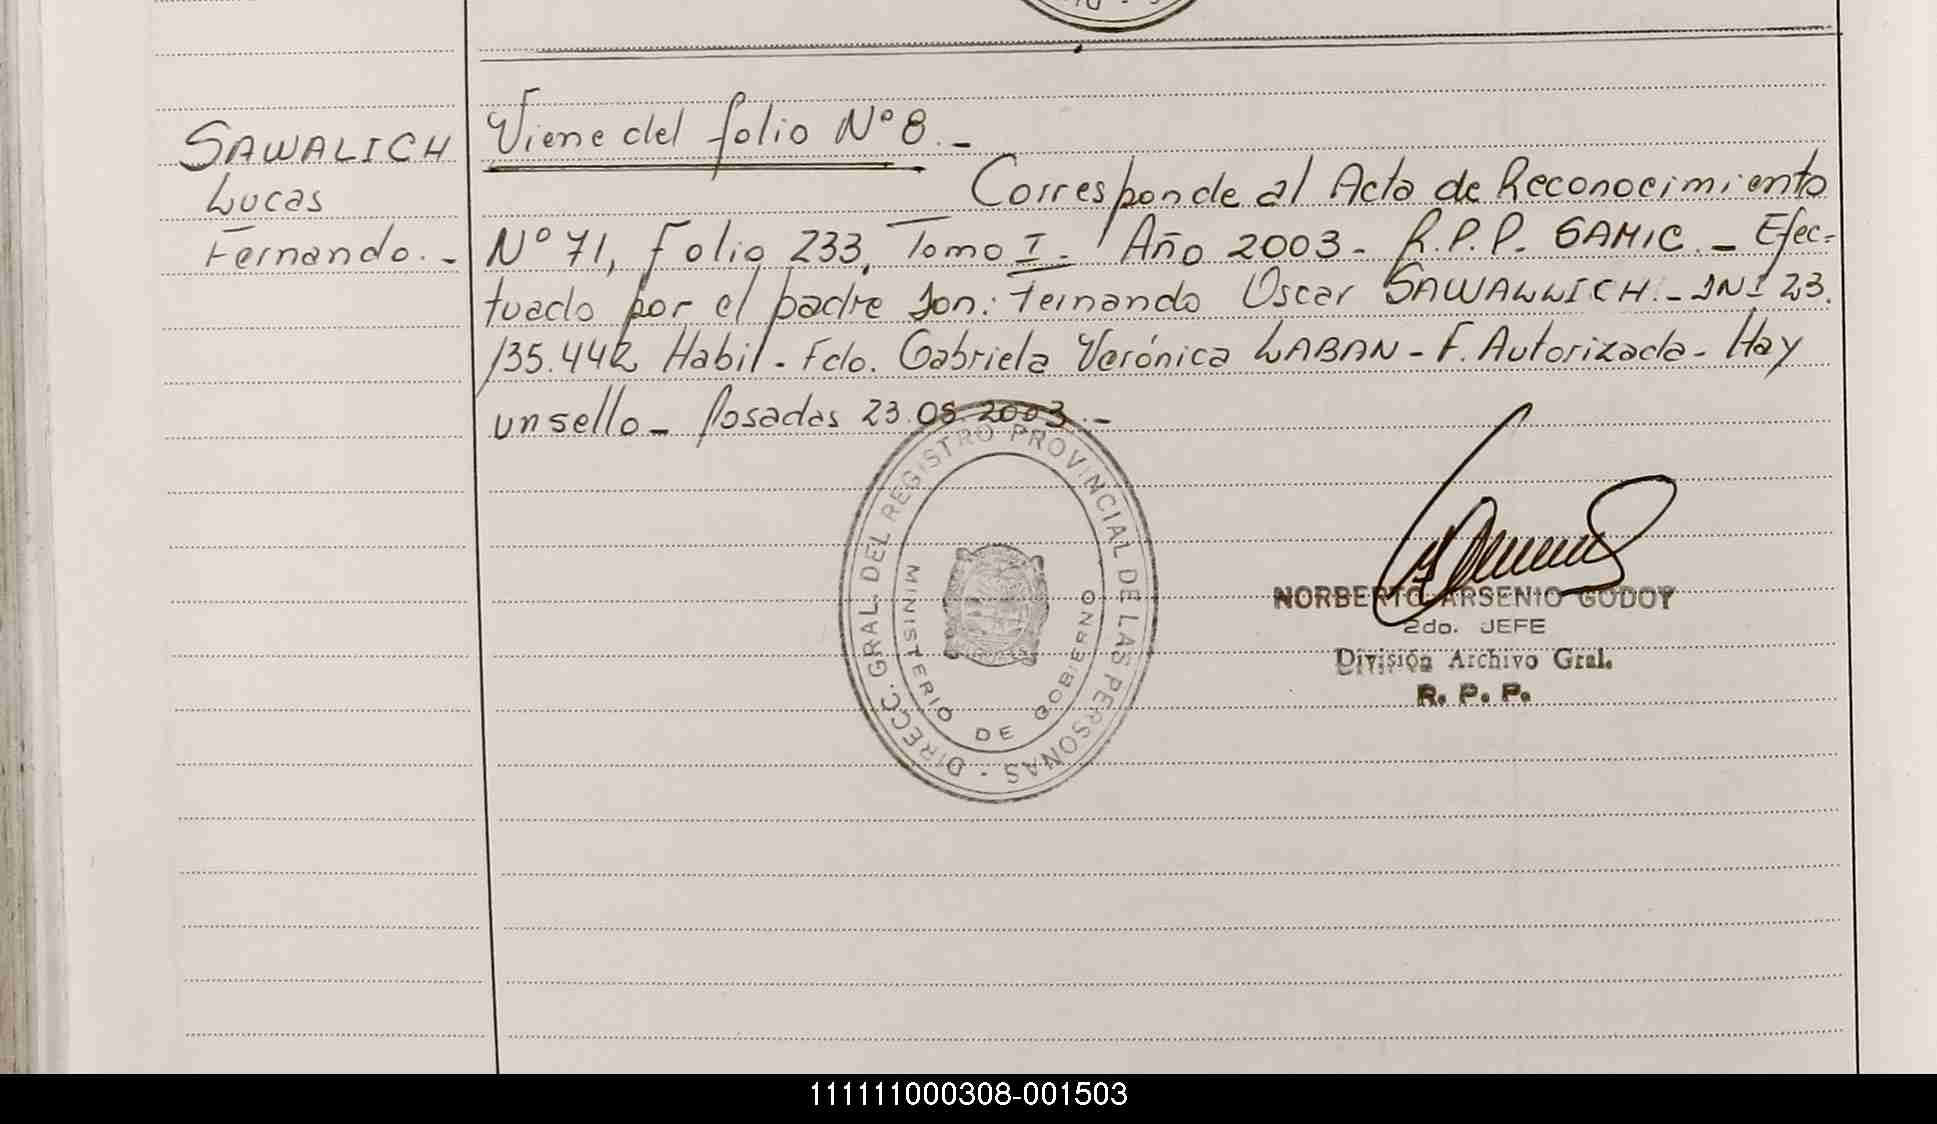 Viene del folio Nº 8.-
SAWALICH
Lucas
Fernando.-
Corresponde al Acta de Reconocimiento
Nº 71, Folio 233, Tomo I- Año 2003- R.P.P. SAMIC.- Efec-
tuado por el padre Don: Fernando Oscar SAWALLICH.- DNI 23.
135.442 Habil- Fdo. Gabriela Verónica LABAN- F. Autorizada- Hay
un sello- Posadas 23.05.2003.-
DIRECC. GRAL. DEL REGISTRO PROVINCIAL DE LAS PERSONAS -
MINISTERIO DE GOBIERNO
NORBERTO ARSENIO GODOY
2do. JEFE
División Archivo Gral.
R. P. P.
111111000308-001503